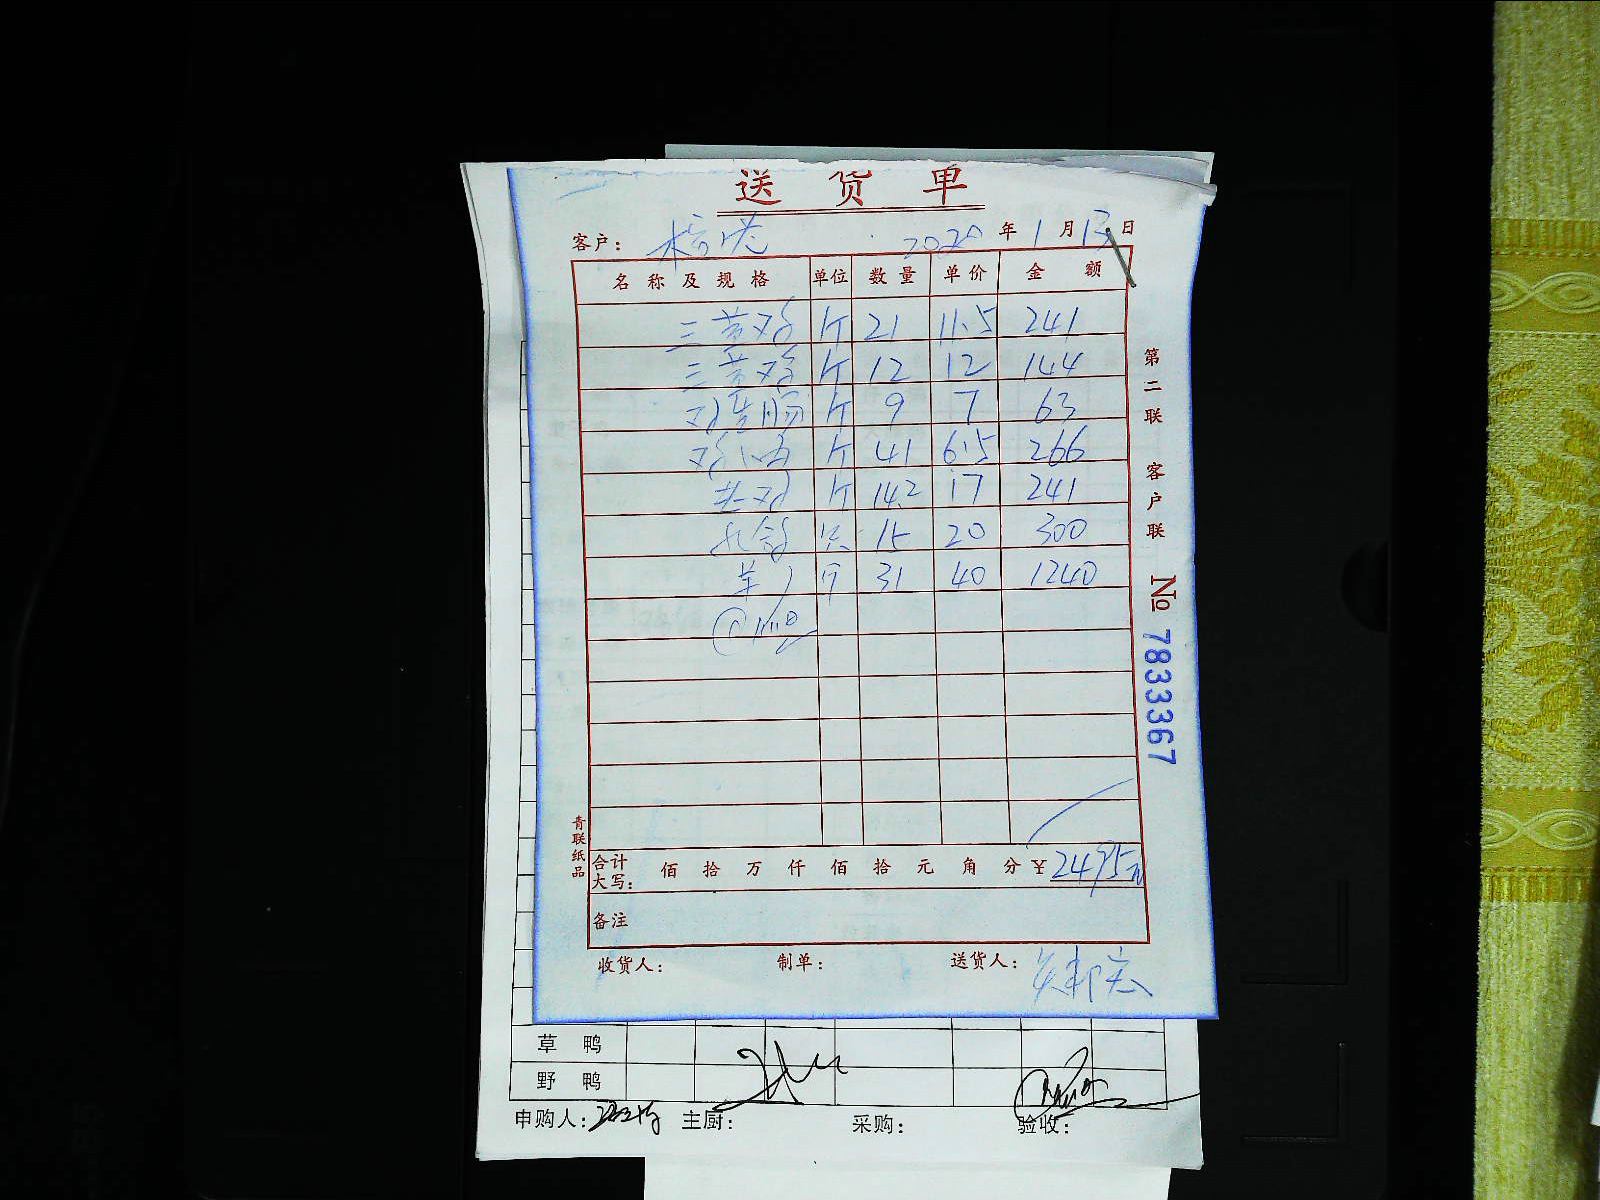 送货单
客户： 2020年1月13日
名称及规格 单位 数量 单价 金额
三黄鸡 斤 21 11.5 241
三黄鸡 斤 12 12 144
斤 9 7 63
鸡 斤 41 6.5 266
斤 14.2 17 241
只 15 20 300
31 40 1240
合计大写： 佰 拾 万 仟 佰 拾 元 角 分 ¥2495元
备注
收货人： 制单： 送货人：
第二联 客户联 No 7833367
青联纸品
草鸭
野鸭
申购人： 主厨： 采购： 验收：